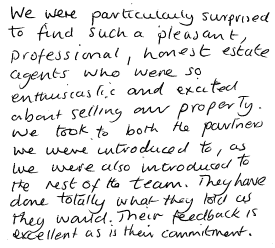 We were particularly surprised
to find such a pleasant,
professional, honest estate
agents who were so
enthusiastic and excited
about selling our property.
We took to both the partners
we were introduced to, as
we were also introduced to
the rest of the team. They have
done totally what they told us
they would. Their feedback is
excellent as is their commitment.